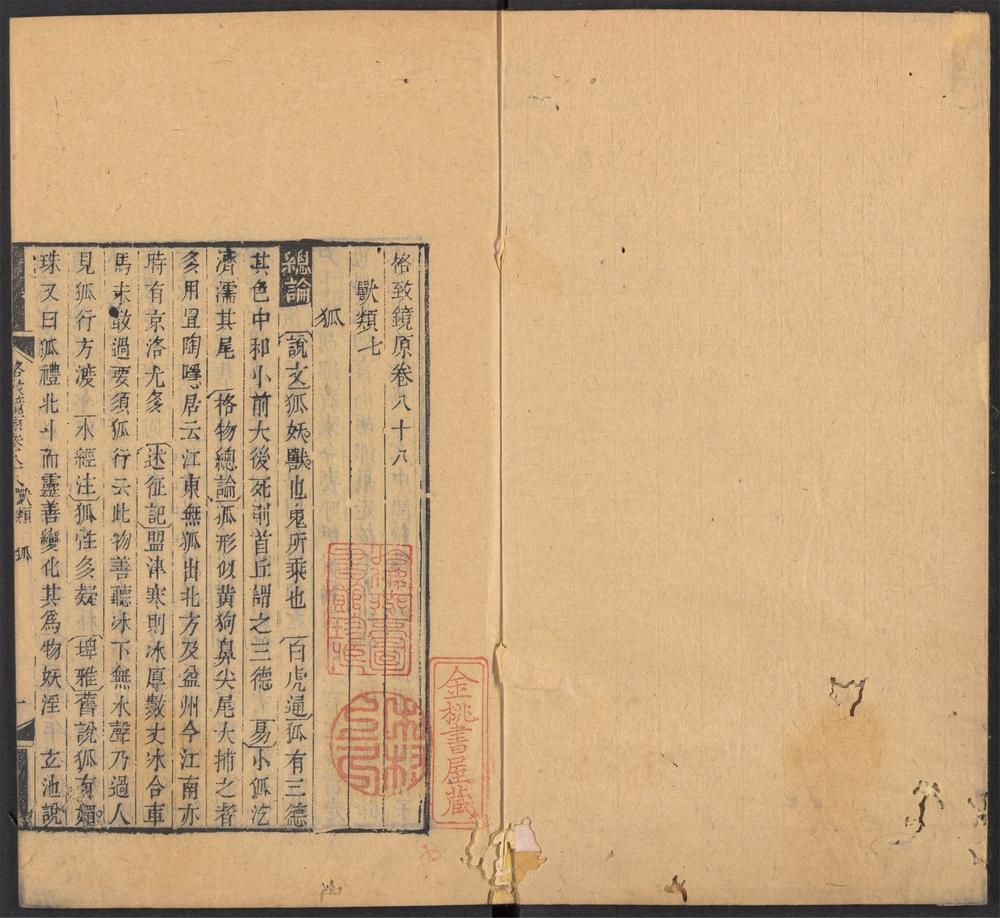 格致鏡原卷八十八
獸類七
狐
總論 說文狐妖獸也鬼所乘也 百虎通狐有三德
其色中和小前大後死則首丘謂之三德 易小狐汔
濟濡其尾 格物總論狐形似黃狗鼻尖尾大捕之者
多用罝陶隱居云江東無狐出北方及益州今江南亦
時有京洛尤多 述征記盟津寒則冰厚數丈冰合車
馬未敢過要須狐行云此物善聽冰下無水聲乃過人
見狐行方渡 水經注狐性多疑 埤雅舊說狐有媚
珠又曰狐禮北斗而靈善變化其為物妖淫 玄池說
格致鏡原卷八十八 獸類 狐 一
金桃書屋藏